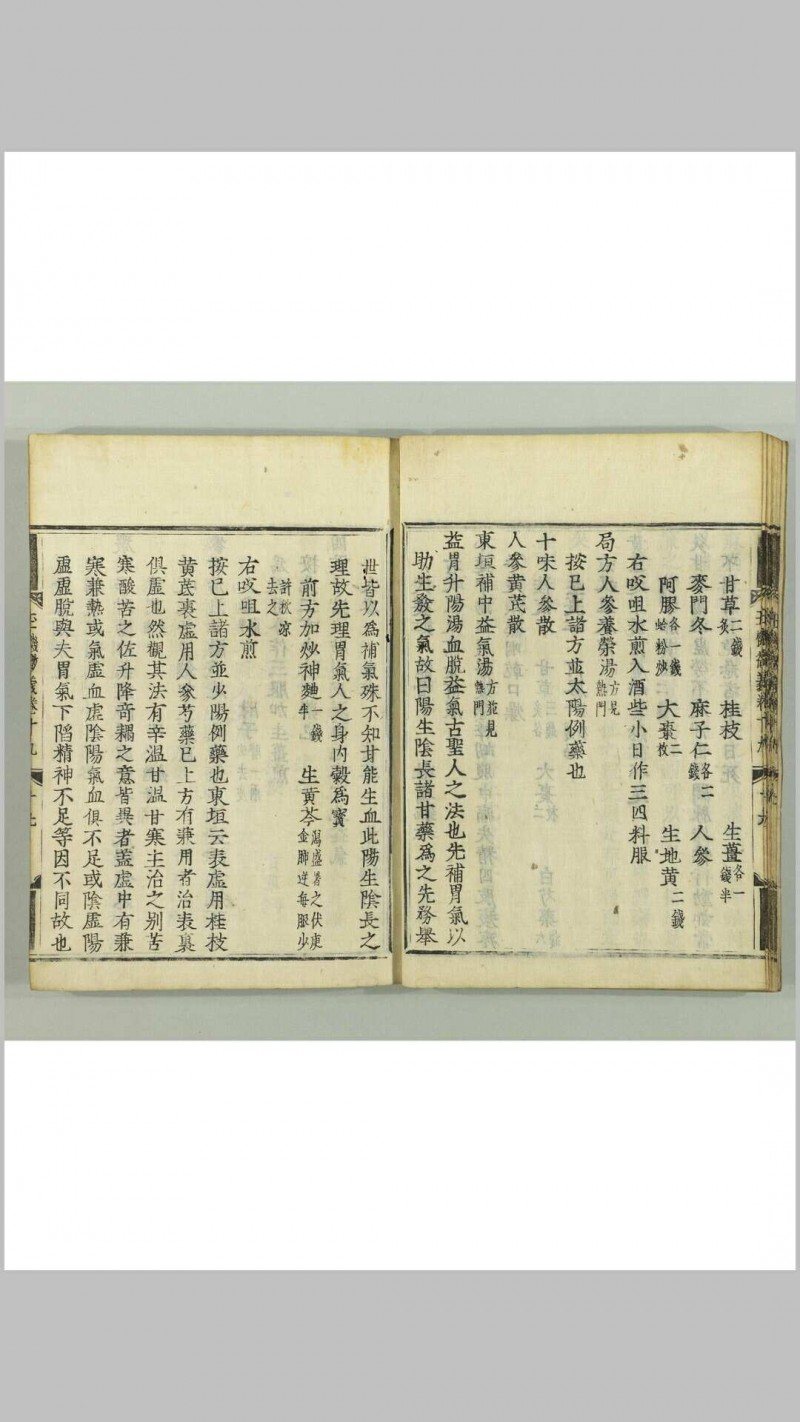 甘草二錢炙 桂枝 生薑各一錢半
麥門冬 麻子仁各二錢 人參
阿膠各一錢蛤粉炒 大棗二枚 生地黃二錢
右㕮咀水煎入酒些小日作三四料服
局方人參養榮湯方見熱門
按已上諸方並太陽例藥也
十味人參散
人參黃芪散
東垣補中益氣湯方並見熱門
益胃升陽湯血脫益氣古聖人之法也先補胃氣以
助生發之氣故曰陽生陰長諸甘藥為之先務舉
世皆以為補氣殊不知甘能生血此陽生陰長之
理故先理胃氣人之身內穀為寶
前方加炒神麴一錢半 生黃芩瀉盛暑之伏庚金肺逆每服少許秋凉去之
右㕮咀水煎
按已上諸方並少陽例藥也東垣云表虛用桂枝
黃芪裏虛用人參芍藥已上方有兼用者治表裏
俱虛也然觀其法有辛溫甘溫甘寒主治之別苦
寒酸苦之佐升降奇耦之意皆異者蓋虛中有兼
寒兼熱或氣虛血虛陰陽氣血俱不足或陰虛陽
虛虛脫與夫胃氣下陷精神不足等因不同故也